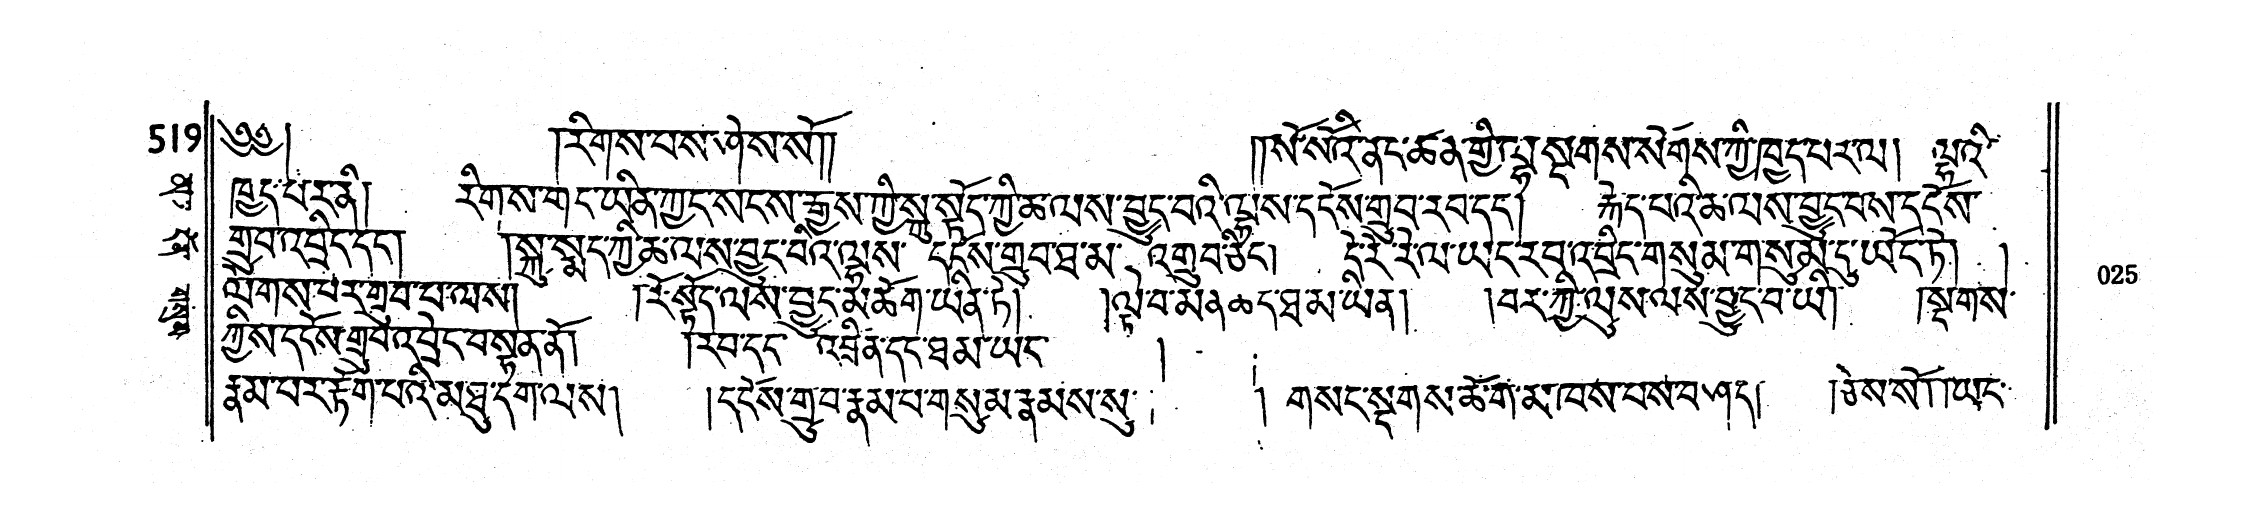 519 ༄༅། །རིགས་པས་ཤེས་སོ།། །།སོ་སོའི་ནང་ཚན་གྱི་ལྷ་སྔགས་སོགས་ཀྱི་ཁྱད་པར་ལ། ལྷའི་
ཁྱད་པར་ནི། རིགས་གང་ཡིན་ཀྱང་སངས་རྒྱས་ཀྱི་སྐུ་སྟོད་ཀྱི་ཆ་ལས་བྱུང་བའི་ལྷས་དངོས་གྲུབ་རབ་དང༌། རྐེད་པའི་ཆ་ལས་བྱུང་བས་དངོས་
གྲུབ་འབྲིང་དང༌། །སྐུ་སྨད་ཀྱི་ཆ་ལས་བྱུང་བའི་ལྷས་ དངོས་གྲུབ་ཐ་མ་ འགྲུབ་ཅིང༌། དེ་རེ་རེ་ལ་ཡང་རབ་འབྲིང་གསུམ་གསུམ་དུ་ཡོད་ཏེ། །
ལེགས་པར་གྲུབ་པ་ལས། །རོ་སྟོད་ལས་བྱུང་མཆོག་ཡིན་ཏེ། །ལྟེ་བ་མན་ཆད་ཐ་མ་ཡིན། །བར་ཀྱི་ལུས་ལས་བྱུང་བ་ཡི། །སྔགས་
ཀྱིས་དངོས་གྲུབ་འབྲེང་བསྟན་ནོ། །རབ་དང་ འབྲིན་དང་ཐ་མ་ཡང་ །
རྣམ་པར་རྟོག་པའི་མཐུ་དག་ལས། །དངོས་གྲུབ་རྣམ་པ་གསུམ་རྣམས་སུ་ །གསང་སྔགས་ཆོ་ག་མཁས་པས་བཤད། །ཅེས་སོ།། །ཡང་
025